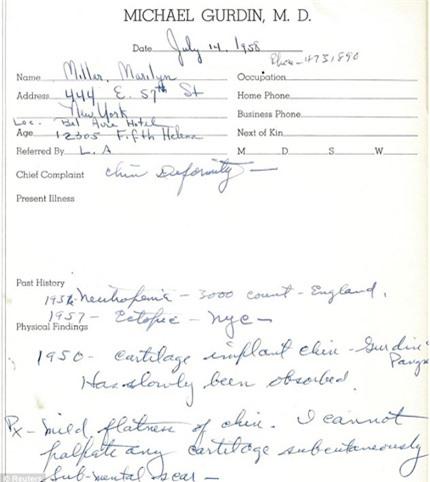 MICHAEL GURDIN, M. D.
Date July 14, 1958
Phone-4731890
Name Miller, Marilyn Occupation
Address 444 E. 57th St Home Phone
New York Business Phone
Loc. Bel Aire Hotel
Age 12305 Fifth Helena Next of Kin
Referred By L. A M D S W
Chief Complaint chin Deformity
Present Illness
Past History
1956 - Neutropenia - 3000 count - England.
1957 - Ectopic - nyc -
Physical Findings
1950 - cartilage implant chin - Gurdin
Has slowly been absorbed.
Px - mild flatness of chin. I cannot
palpate any cartilage subcutaneously
Sub-mental scar -
© Reuters